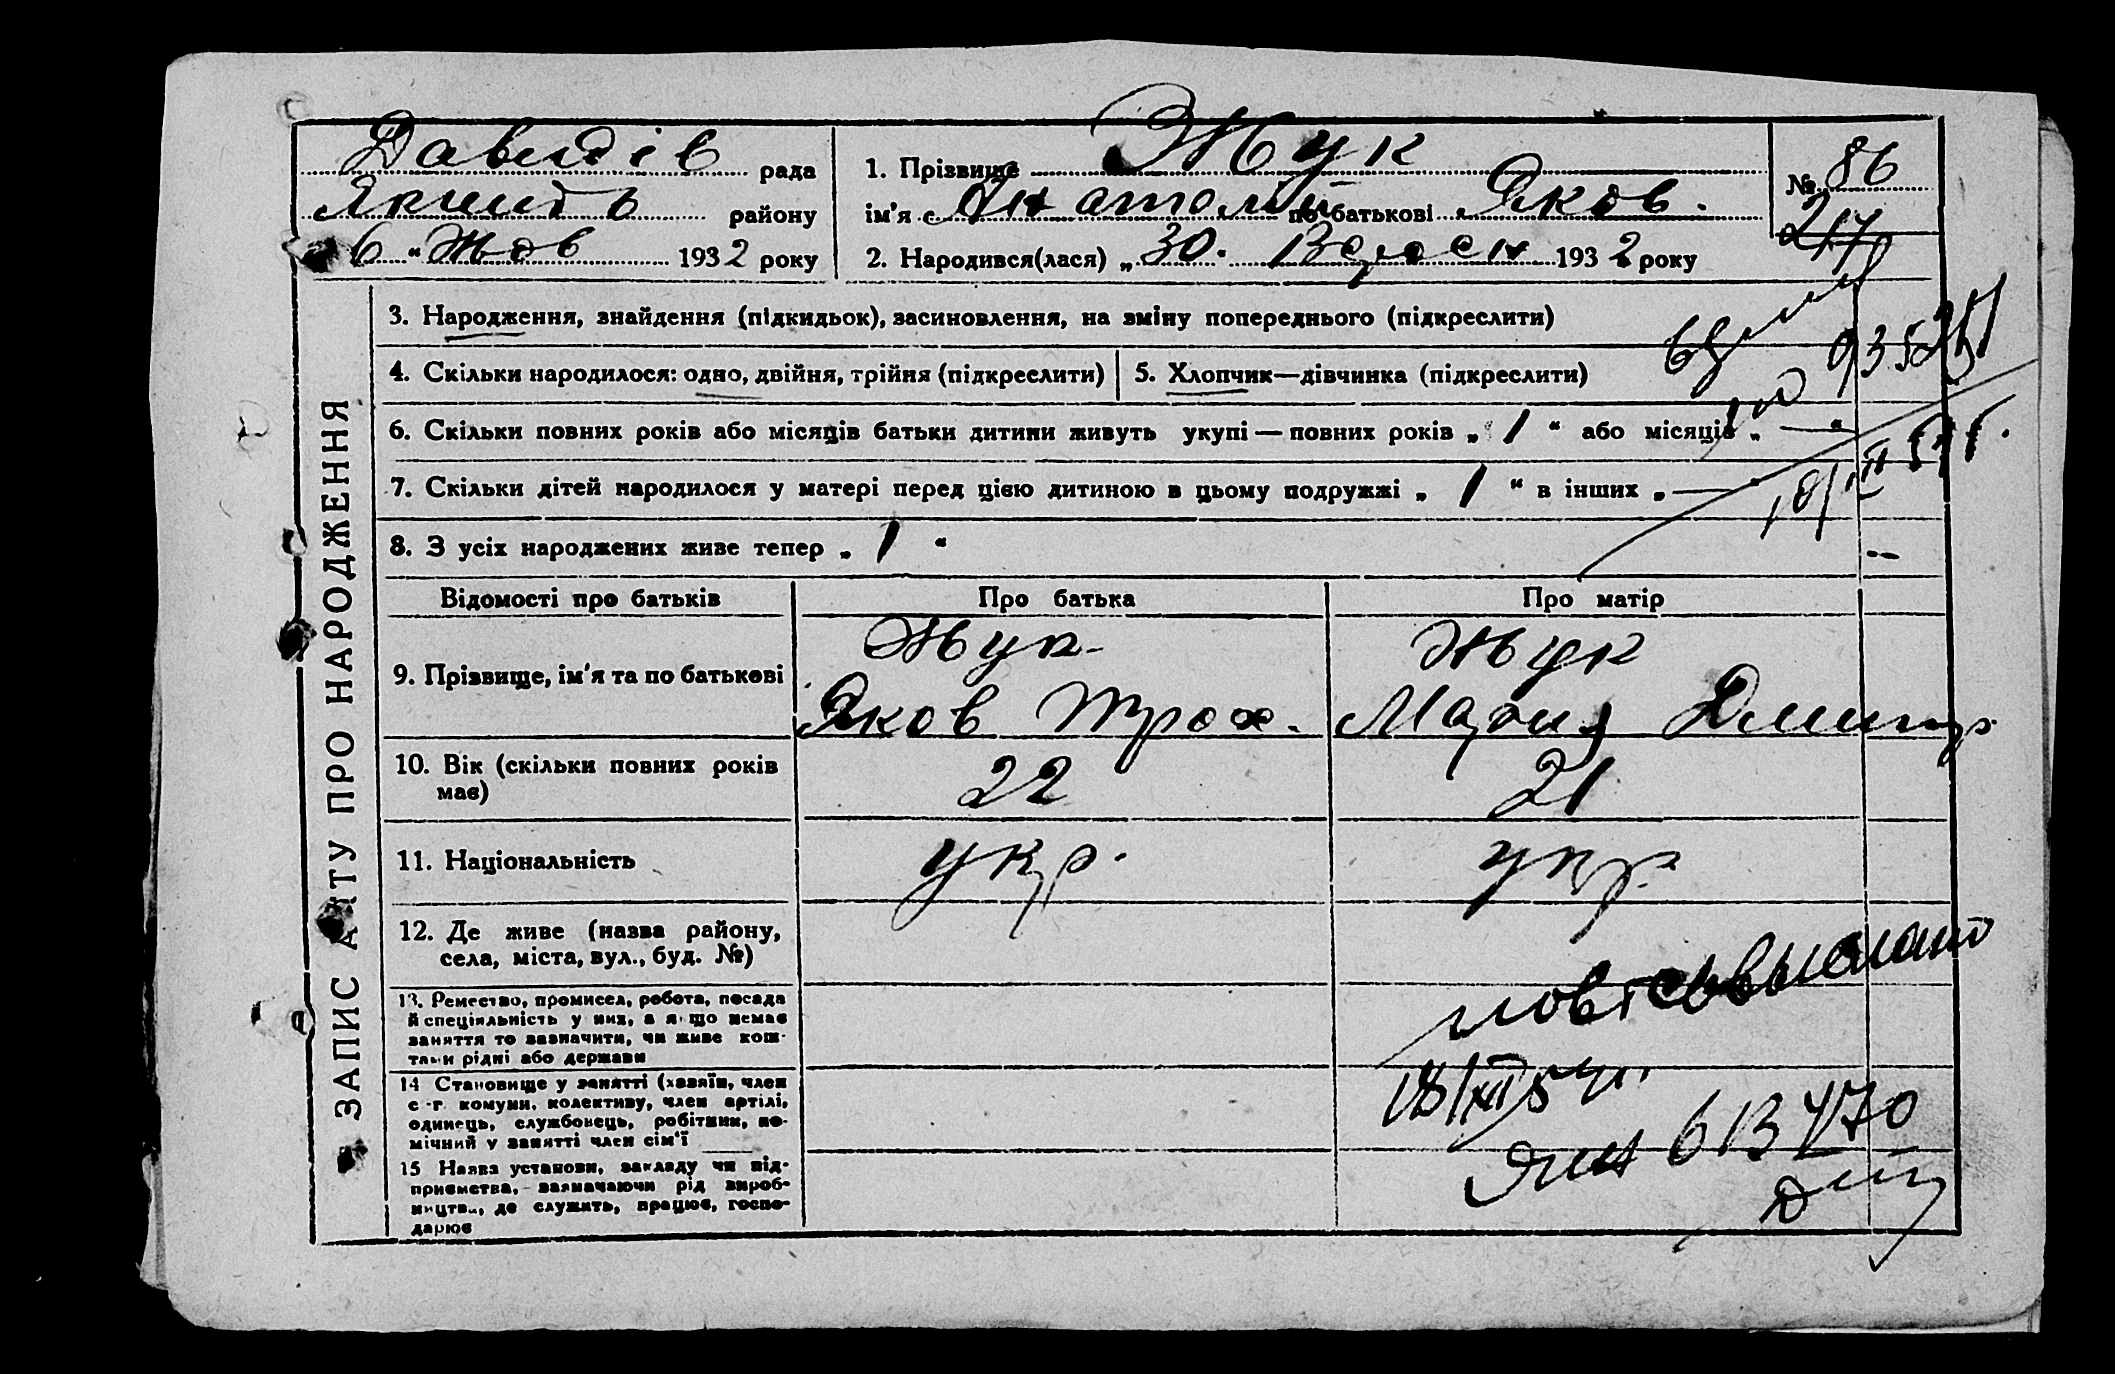 Давидів рада
Якимів району
6 " Жов 1932 року
1. Прізвище Жук
ім'я Анатолий по батькові Яков.
2. Народився(лася) „ 30. Вересн 1932 року
№ 86
217
ЗАПИС АКТУ ПРО НАРОДЖЕННЯ
3. Народження, знайдення (підкидьок), засиновлення, на зміну попереднього (підкреслити)
4. Скільки народилося: одно, двійня, трійня (підкреслити)
5. Хлопчик—дівчинка (підкреслити)
6. Скільки повних років або місяців батьки дитини живуть укупі — повних років „ 1 “ або місяців „ — “
7. Скільки дітей народилося у матері перед цією дитиною в цьому подружжі „ 1 “ в інших „ — “
8. З усіх народжених живе тепер „ 1 “
Відомості про батьків
Про батька
Про матір
9. Прізвище, ім'я та по батькові
Жук
Яков Трох.
Жук
Мария Дмитр.
10. Вік (скільки повних років
має)
22
21
11. Національність
укр.
укр.
12. Де живе (назва району,
села, міста, вул., буд. №)
13. Ремество, промисел, робота, посада
й спеціяльність у них, а якщо немає
заняття то зазначити, чи живе кош-
тами рідні або держави
14 Становище у занятті (хазяїн, член
с.-г. комуни, колективу, член артілі,
одинець, службовець, робітник, по-
мічний у занятті член сім'ї
15 Назва установи, закладу чи під-
приємства, зазначаючи рід вироб-
ництва, де служить, працює, госпо-
дарює
18/XII 54 г.
613470